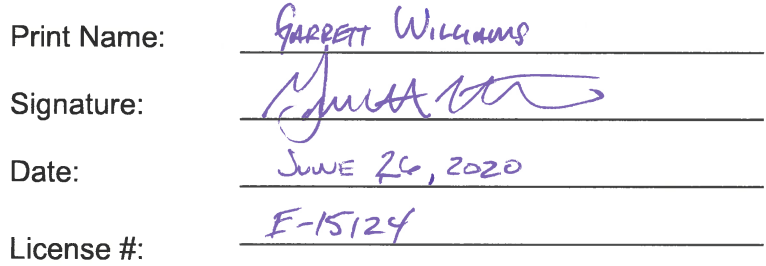 Print Name: GARRETT WILLIAMS
Signature:
Date: JUNE 26, 2020
License #: E-15124